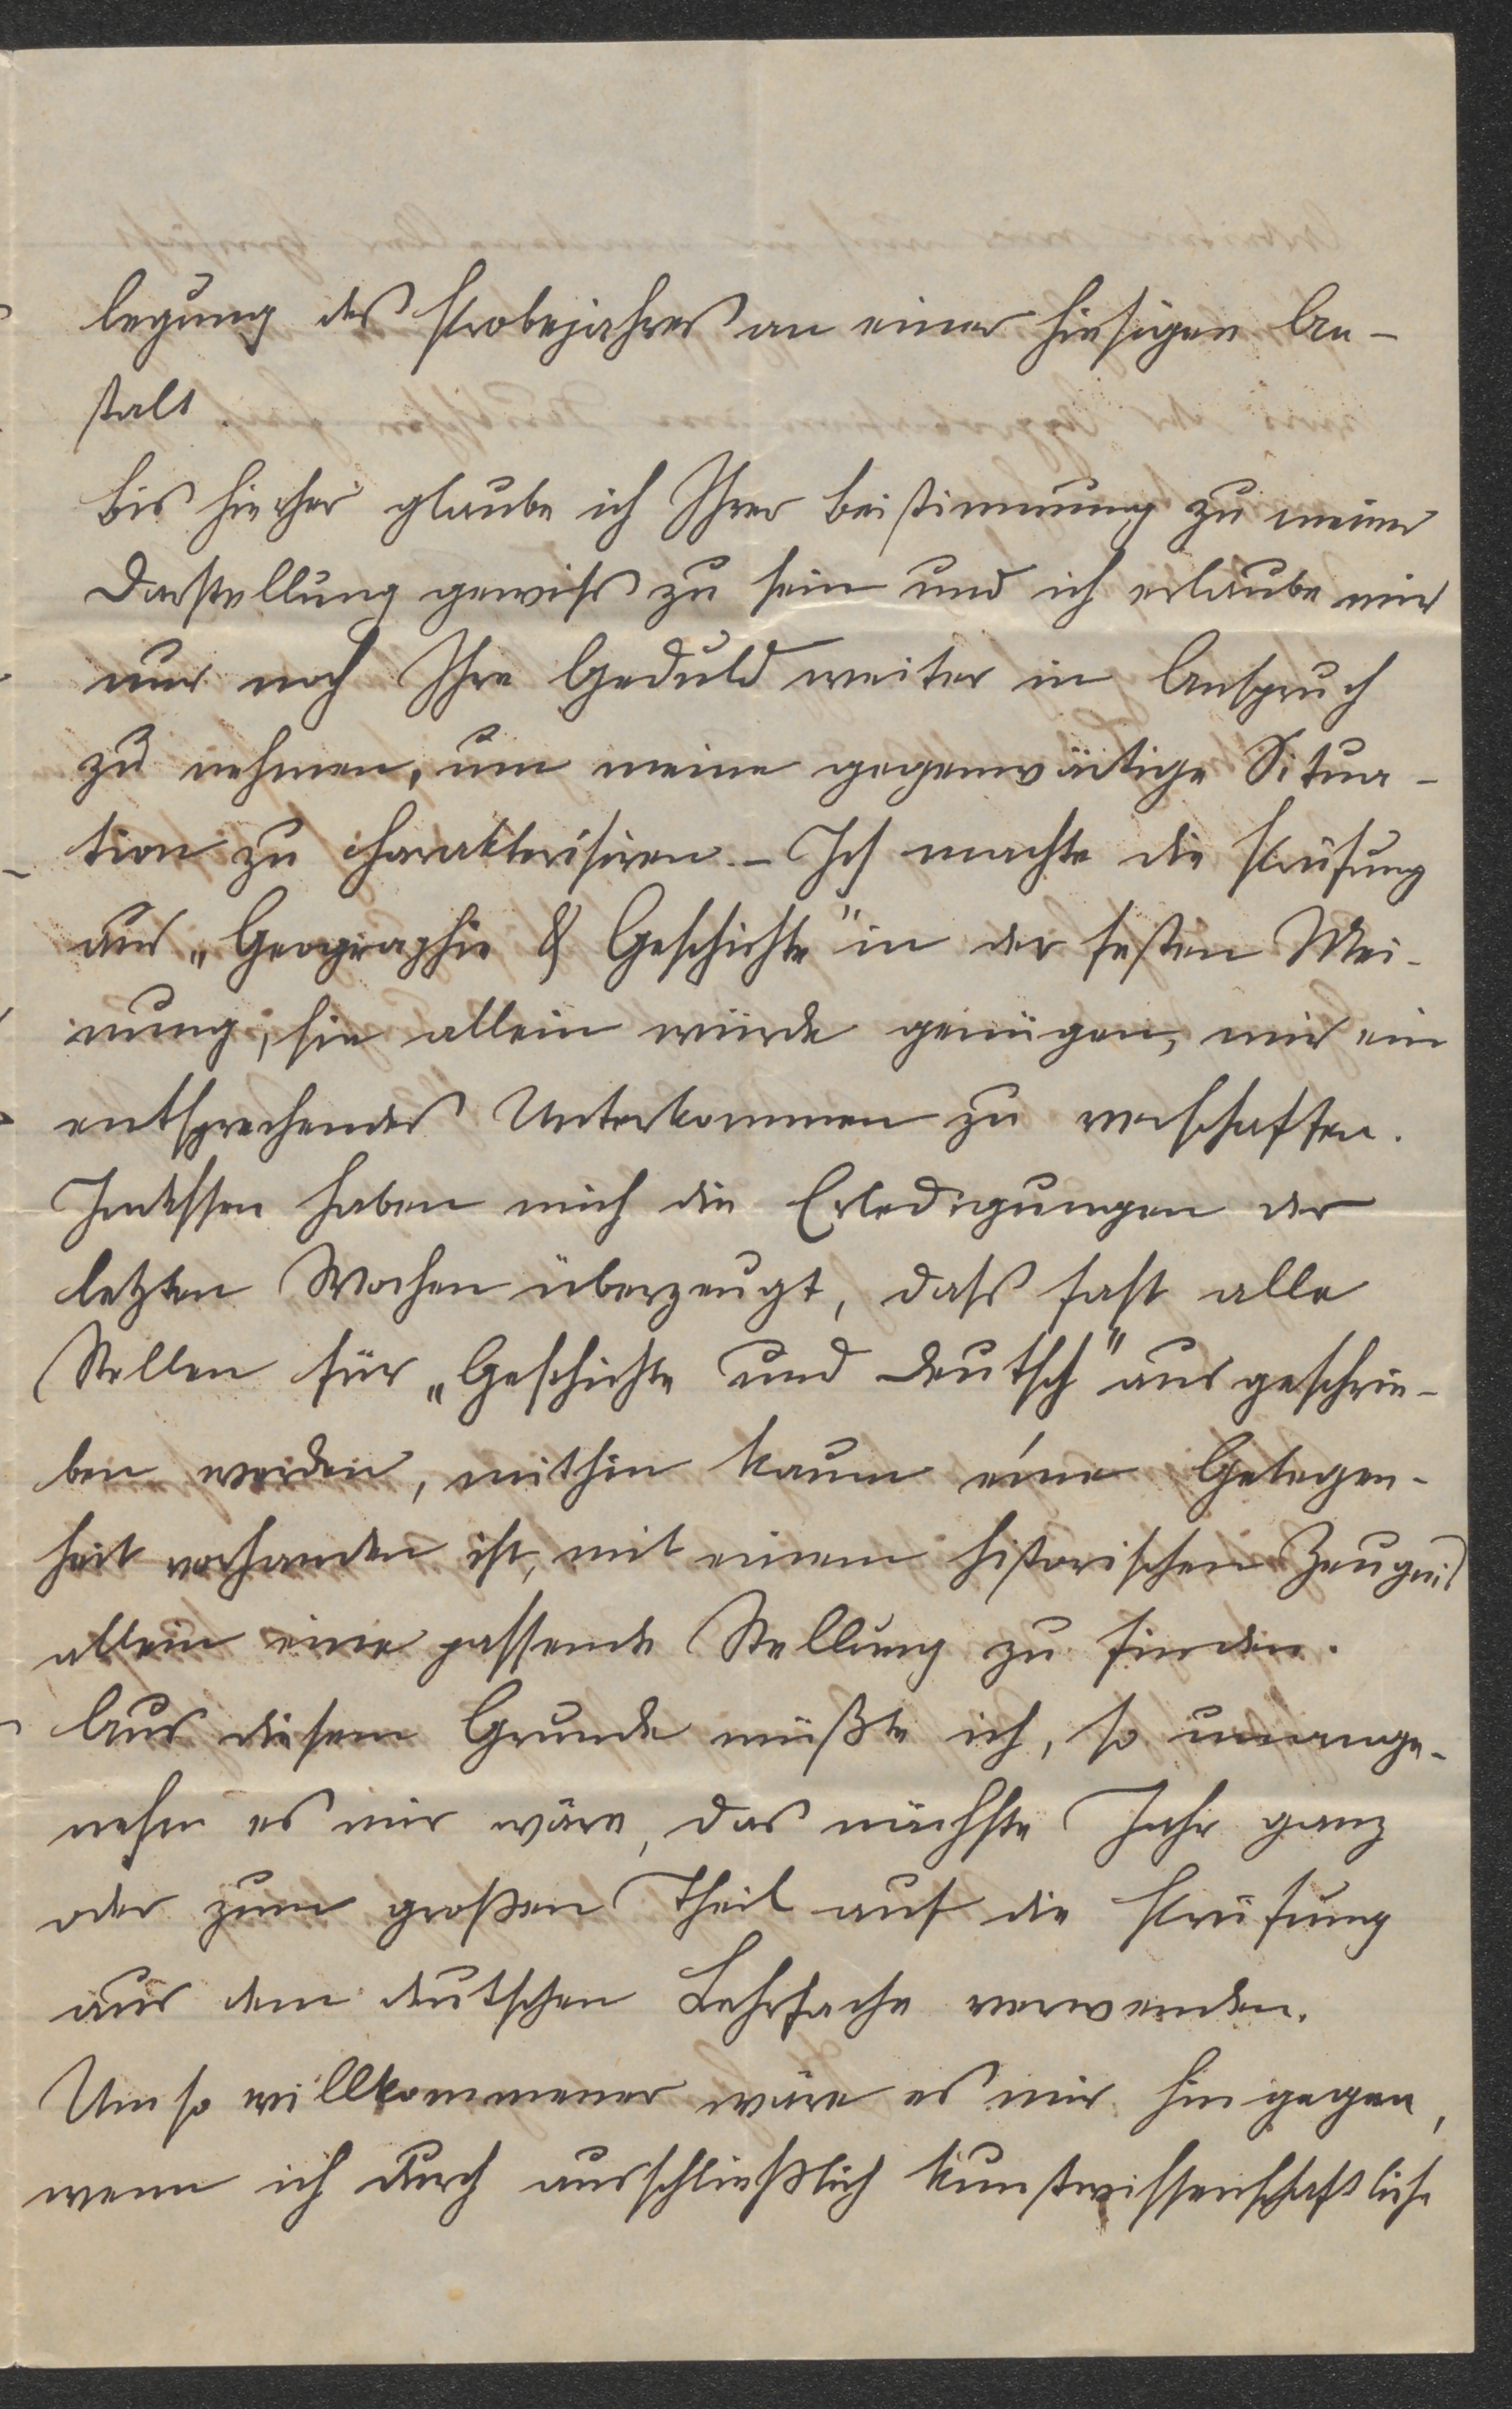 legung des Probejahres an einer hiesigen An-
stalt.
Bis hierher glaube ich Ihrer Beistimmung zu meiner
Darstellung gewiss zu sein und ich erlaube mir
nur noch Ihre Geduld weiter in Anspruch
zu nehmen, um meine gegenwärtige Situa-
tion zu charakterisiren. – Ich machte die Prüfung
aus „Geographie & Geschichte" in der festen Mei-
nung, sie allein würde genügen, mir ein
entsprechendes Unterkommen zu verschaffen.
Indessen haben mich die Erledigungen der
letzten Wochen überzeugt, dass fast alle
Stellen für „Geschichte und Deutsch" ausgeschrie-
ben werden, mithin kaum eine Gelegen-
heit vorhanden ist, mit einem historischen Zeugnis
allein eine passende Stellung zu finden.
Aus diesem Grunde müßte ich, so unange-
nehm es mir wäre, das nächste Jahr ganz
oder zum großen Theil auf die Prüfung
aus dem deutschen Lehrfache verwenden.
Umso willkommener wäre es mir hingegen,
wenn ich durch ausschließlich kunstwissenschaftliche